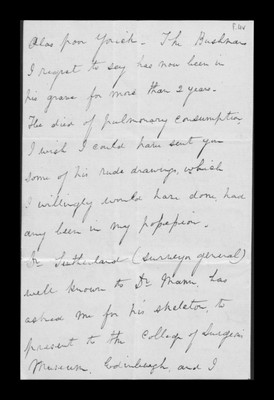 Alas poor Yorick - The Bushman
I regret to say has now been in
his grave for more than 2 years.
He died of pulmonary consumption
I wish I could have sent you
some of his rude drawings, which
I willingly would have done, had
any been in my possession.
Dr Sutherland (surveyor general)
well known to Dr Mann, has
asked me for his skeleton, to
present to the College of Surgeons
Museum, Edinburgh, and I